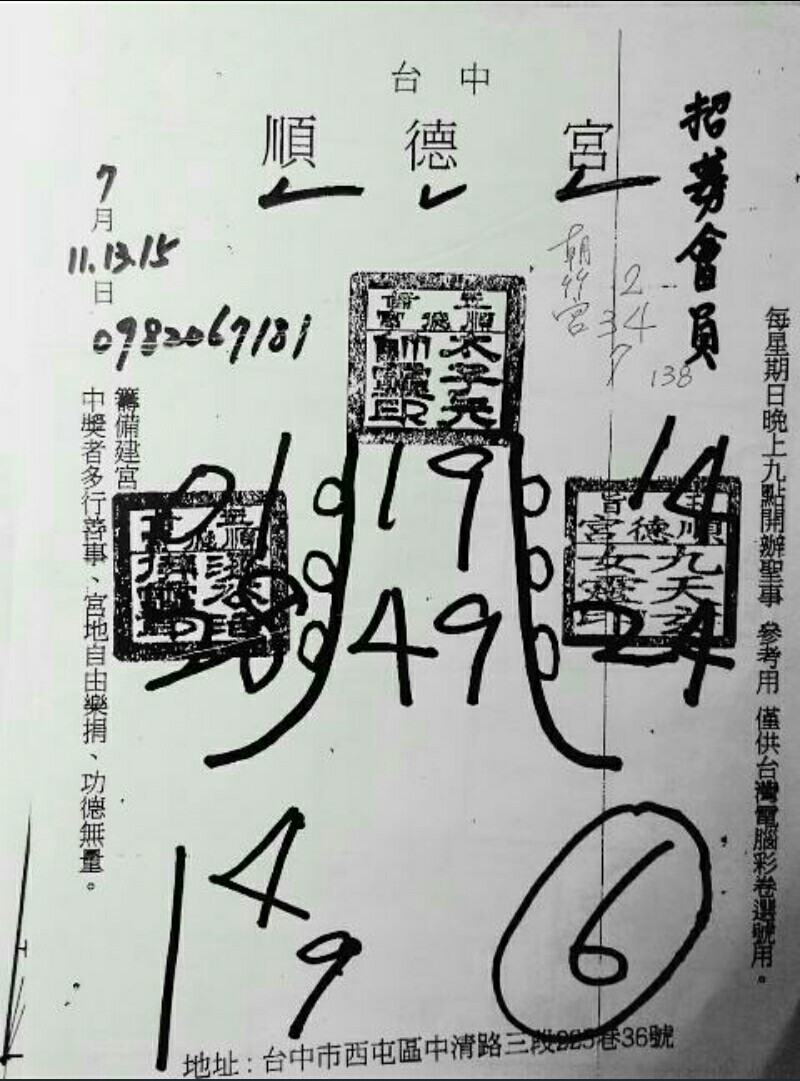 台中
順德宮
招募會員
每星期日晚上九點開辦聖事 參考用 僅供台灣電腦彩卷選號用。
7
月
11.13.15
日
0982067181
籌備建宮
中獎者多行善事、宮地自由樂捐、功德無量。
朝
宮
2
34
7
138
玉旨
順德宮
太子元帥靈印
玉旨
順德宮
玉旨
順德宮
九天
女靈印
01
19
14
49
24
1
4
9
6
地址：台中市西屯區中清路三段225巷36號